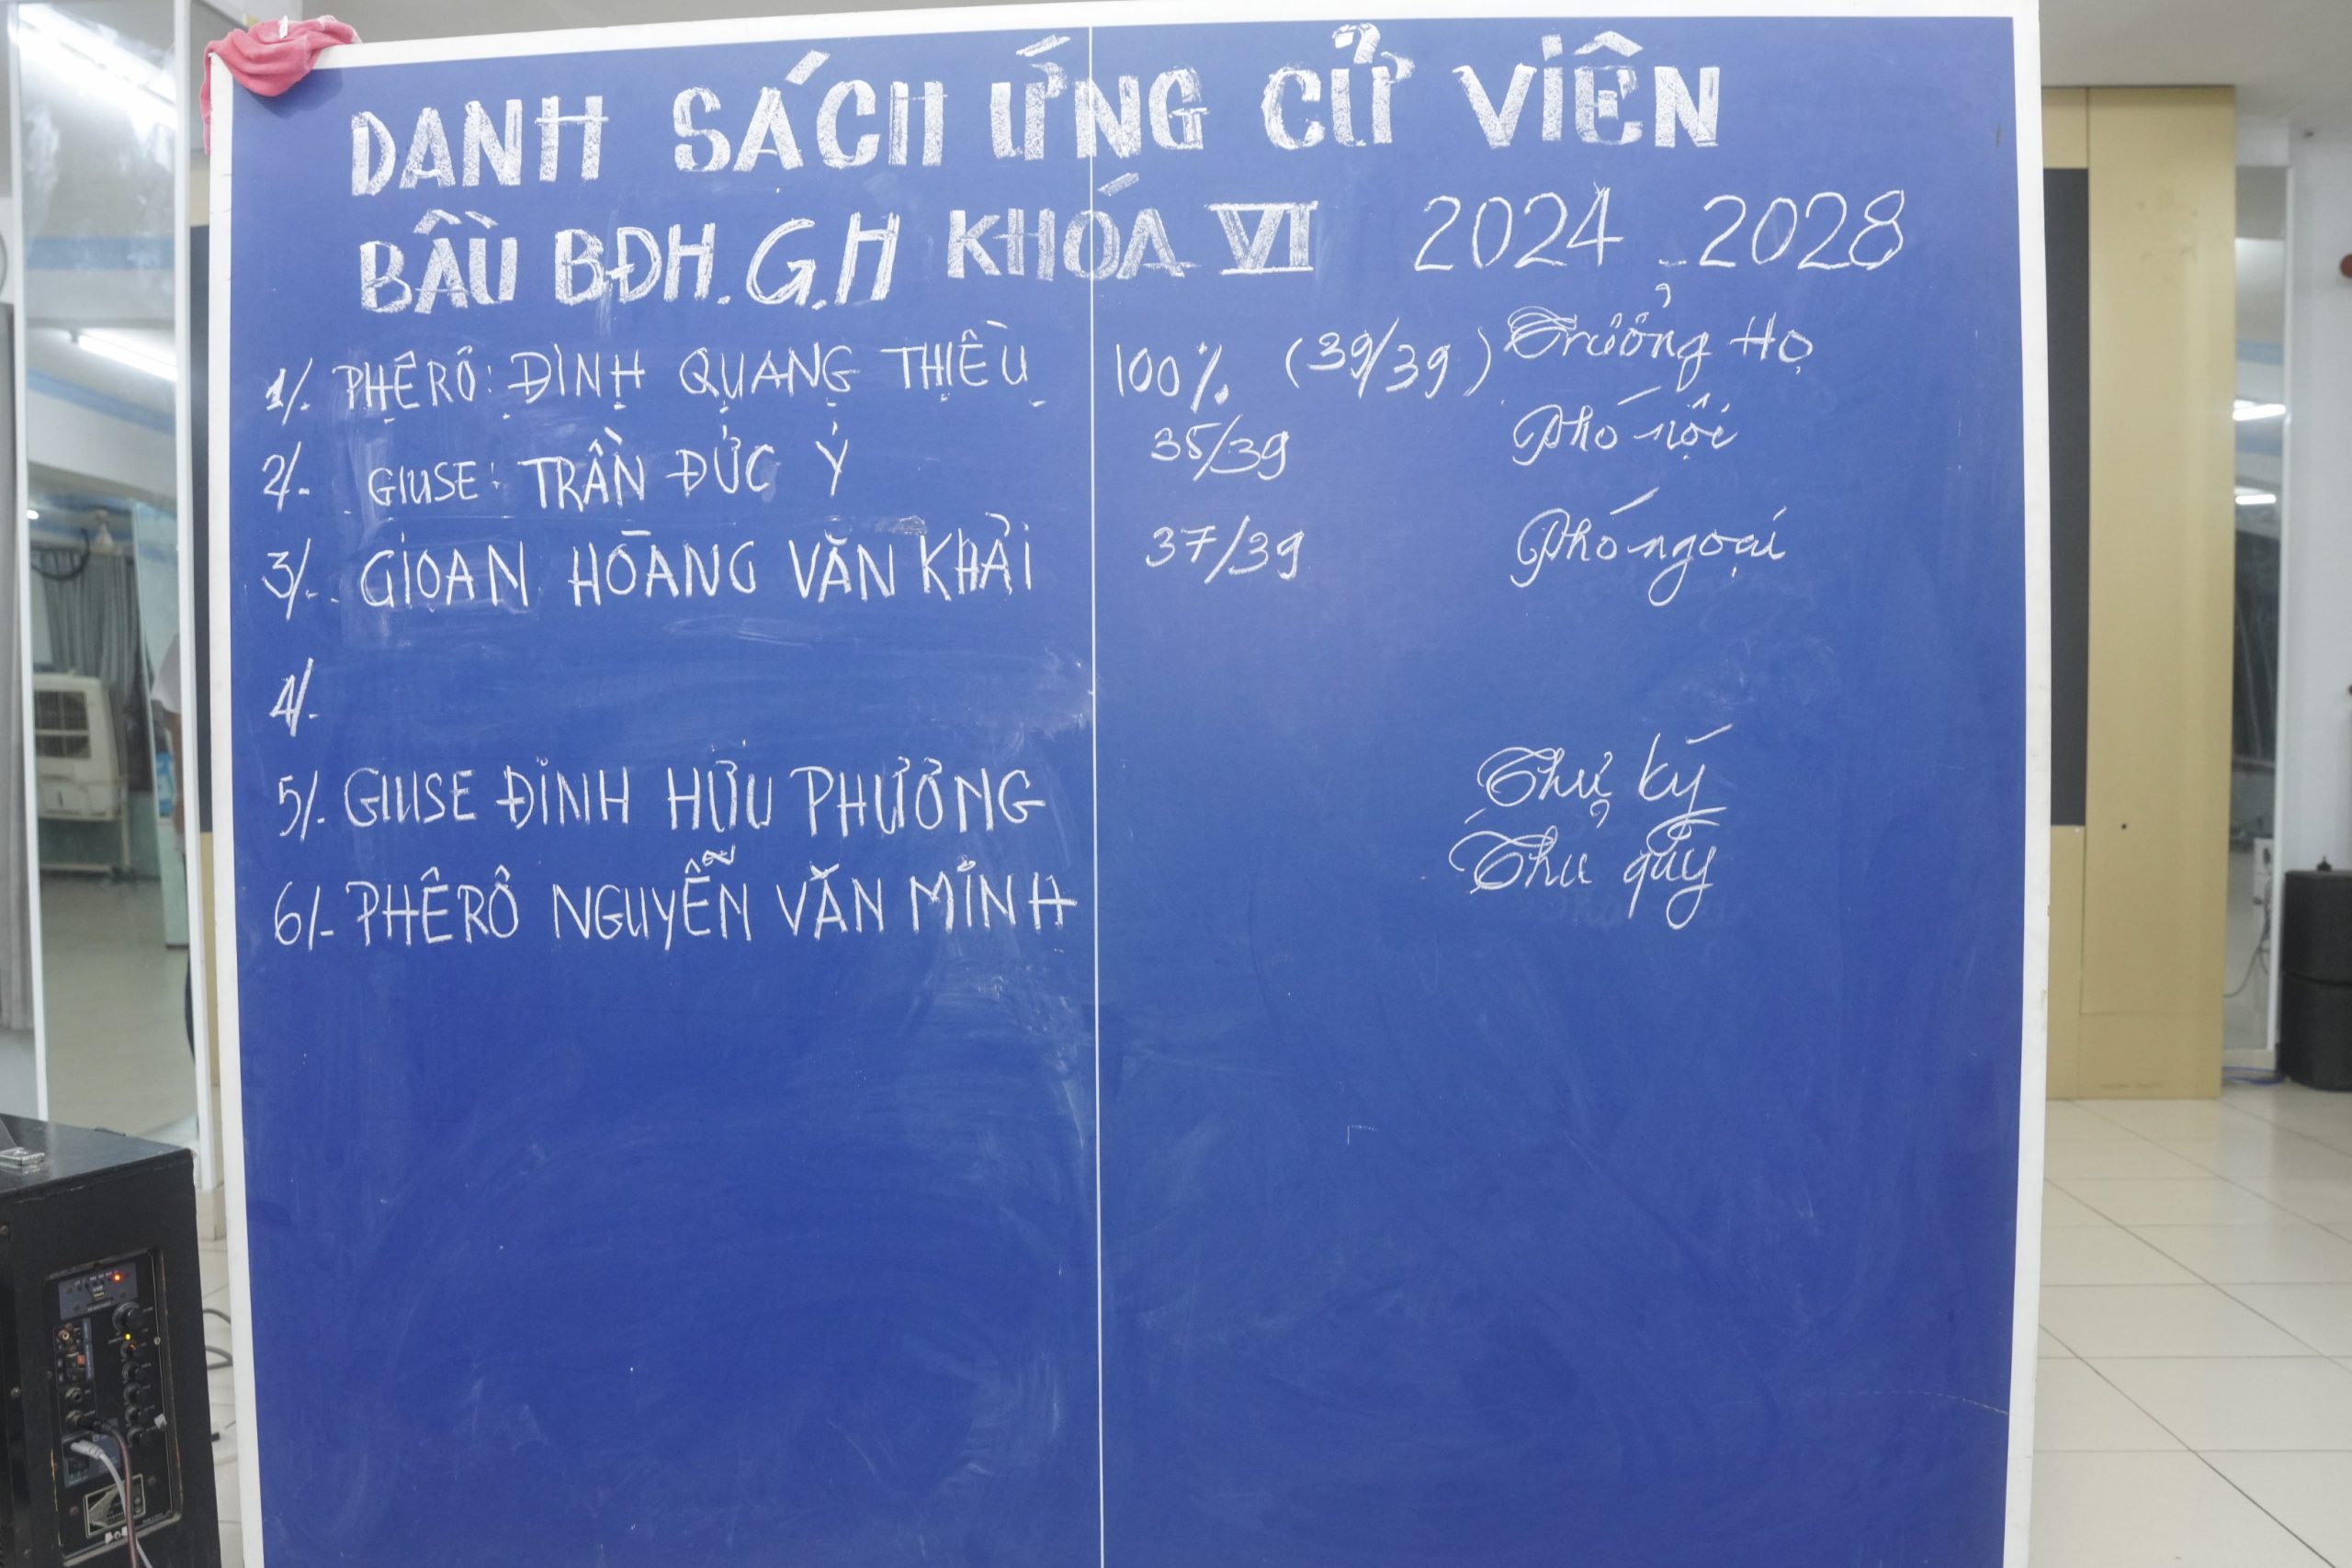 DANH SÁCH ỨNG CỬ VIÊN
BẦU BĐH.G.H KHÓA VI 2024-2028
1/. PHÊRÔ: ĐÌNH QUANG THIỀU 100% (39/39) Trưởng Họ
2/. GIUSE: TRẦN ĐỨC Ý 35/39 Phó nội
3/. GIOAN HOÀNG VĂN KHẢI 37/39 Phó ngoại
4/.
5/. GIUSE ĐINH HỮU PHƯỞNG Thư ký
6/. PHÊRÔ NGUYỄN VĂN MINH Thủ qũy